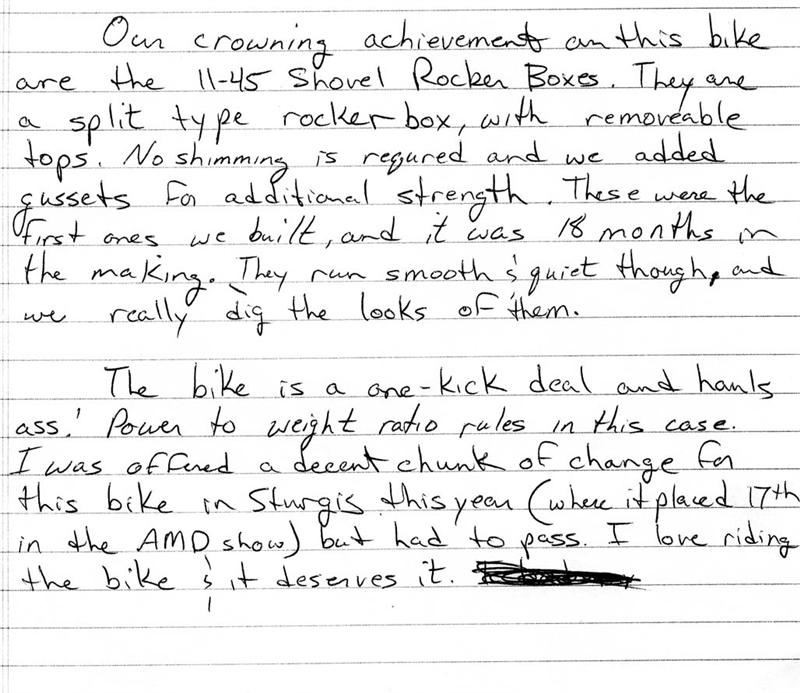 Our crowning achievement on this bike
are the 11-45 Shovel Rocker Boxes. They are
a split type rocker box, with removeable
tops. No shimming is requred and we added
gussets for additional strength. These were the
first ones we built, and it was 18 months in
the making. They run smooth & quiet though, and
we really dig the looks of them.
The bike is a one-kick deal and hauls
ass! Power to weight ratio rules in this case.
I was offered a decent chunk of change for
this bike in Sturgis this year (where it placed 17th
in the AMD show) but had to pass. I love riding
the bike & it deserves it.